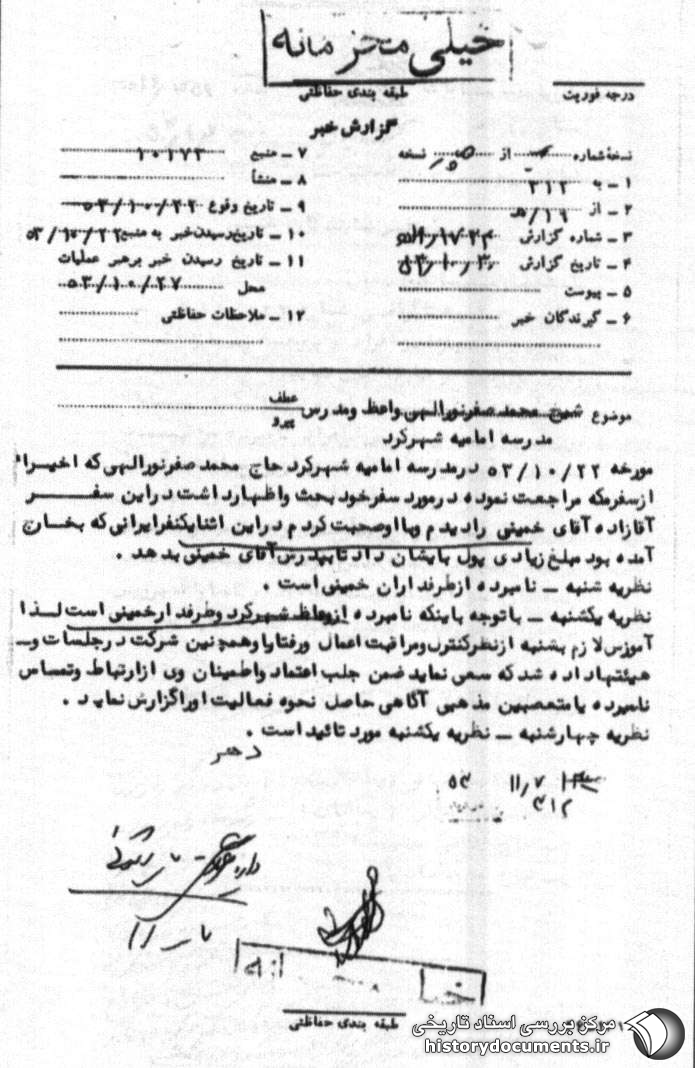 خیلی محرمانه
درجه فوریت
طبقه بندی حفاظتی
گزارش خبر
نسخهٔ شماره از نسخه
۱ ـ به ۳۱۲
۲ ـ از ۱۹/هـ
۳ ـ شماره گزارش
۴ ـ تاریخ گزارش
۵ ـ پیوست
۶ ـ گیرندگان خبر
۷ ـ منبع ۱۰۱۷۳
۸ ـ منشأ
۹ ـ تاریخ وقوع ۵۳/۱۰/۲۲
۱۰ ـ تاریخ رسیدن خبر به منبع ۵۳/۱۰/۲۲
۱۱ ـ تاریخ رسیدن خبر برهبر عملیات
محل ۵۳/۱۰/۲۷
۱۲ ـ ملاحظات حفاظتی
موضوع شیخ محمد صفرنورالهی واعظ ومدرس عطف پیرو
مدرسه امامیه شهرکرد
مورخه ۵۳/۱۰/۲۲ درمدرسه امامیه شهرکرد حاج محمد صفرنورالهی که اخیرا"
ازسفرمکه مراجعت نموده درمورد سفرخود بحث واظهارداشت دراین سفر
آقازاده آقای خمینی رادیدم وبااوصحبت کردم دراین اثنایکنفرایرانی که بخارج
آمده بود مبلغ زیادی پول بایشان داد تابپدرش آقای خمینی بدهد .
نظریه شنبه ـ نامبرده ازطرفداران خمینی است .
نظریه یکشنبه ـ باتوجه باینکه نامبرده ازوعاظ شهرکرد وطرفدارخمینی است لذا
آموزش لازم بشنبه ازنظرکنترل ومراقبت اعمال ورفتاروهمچنین شرکت درجلسات و
هیئتهاداده شدکه سعی نماید ضمن جلب اعتماد واطمینان وی ازارتباط وتماس
نامبرده بامتعصبین مذهبی آگاهی حاصل نحوه فعالیت اوراگزارش نماید .
نظریه چهارشنبه ـ نظریه یکشنبه مورد تائید است .
۱۱/۷ ۵۳
۳۱۲
طبقه بندی حفاظتی
مرکز بررسی اسناد تاریخی
historydocuments.ir